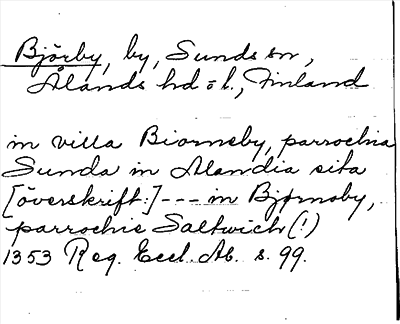 Björby, by, Sunds sn,
Ålands hd o l., Finland
in villa Biornsby, parrochia
Sunda in Alandia sita
[överskrift:] --- in Bjørnsby,
parrochie Saltwich (!)
1353 Reg. Eccl. Ab. s. 99.